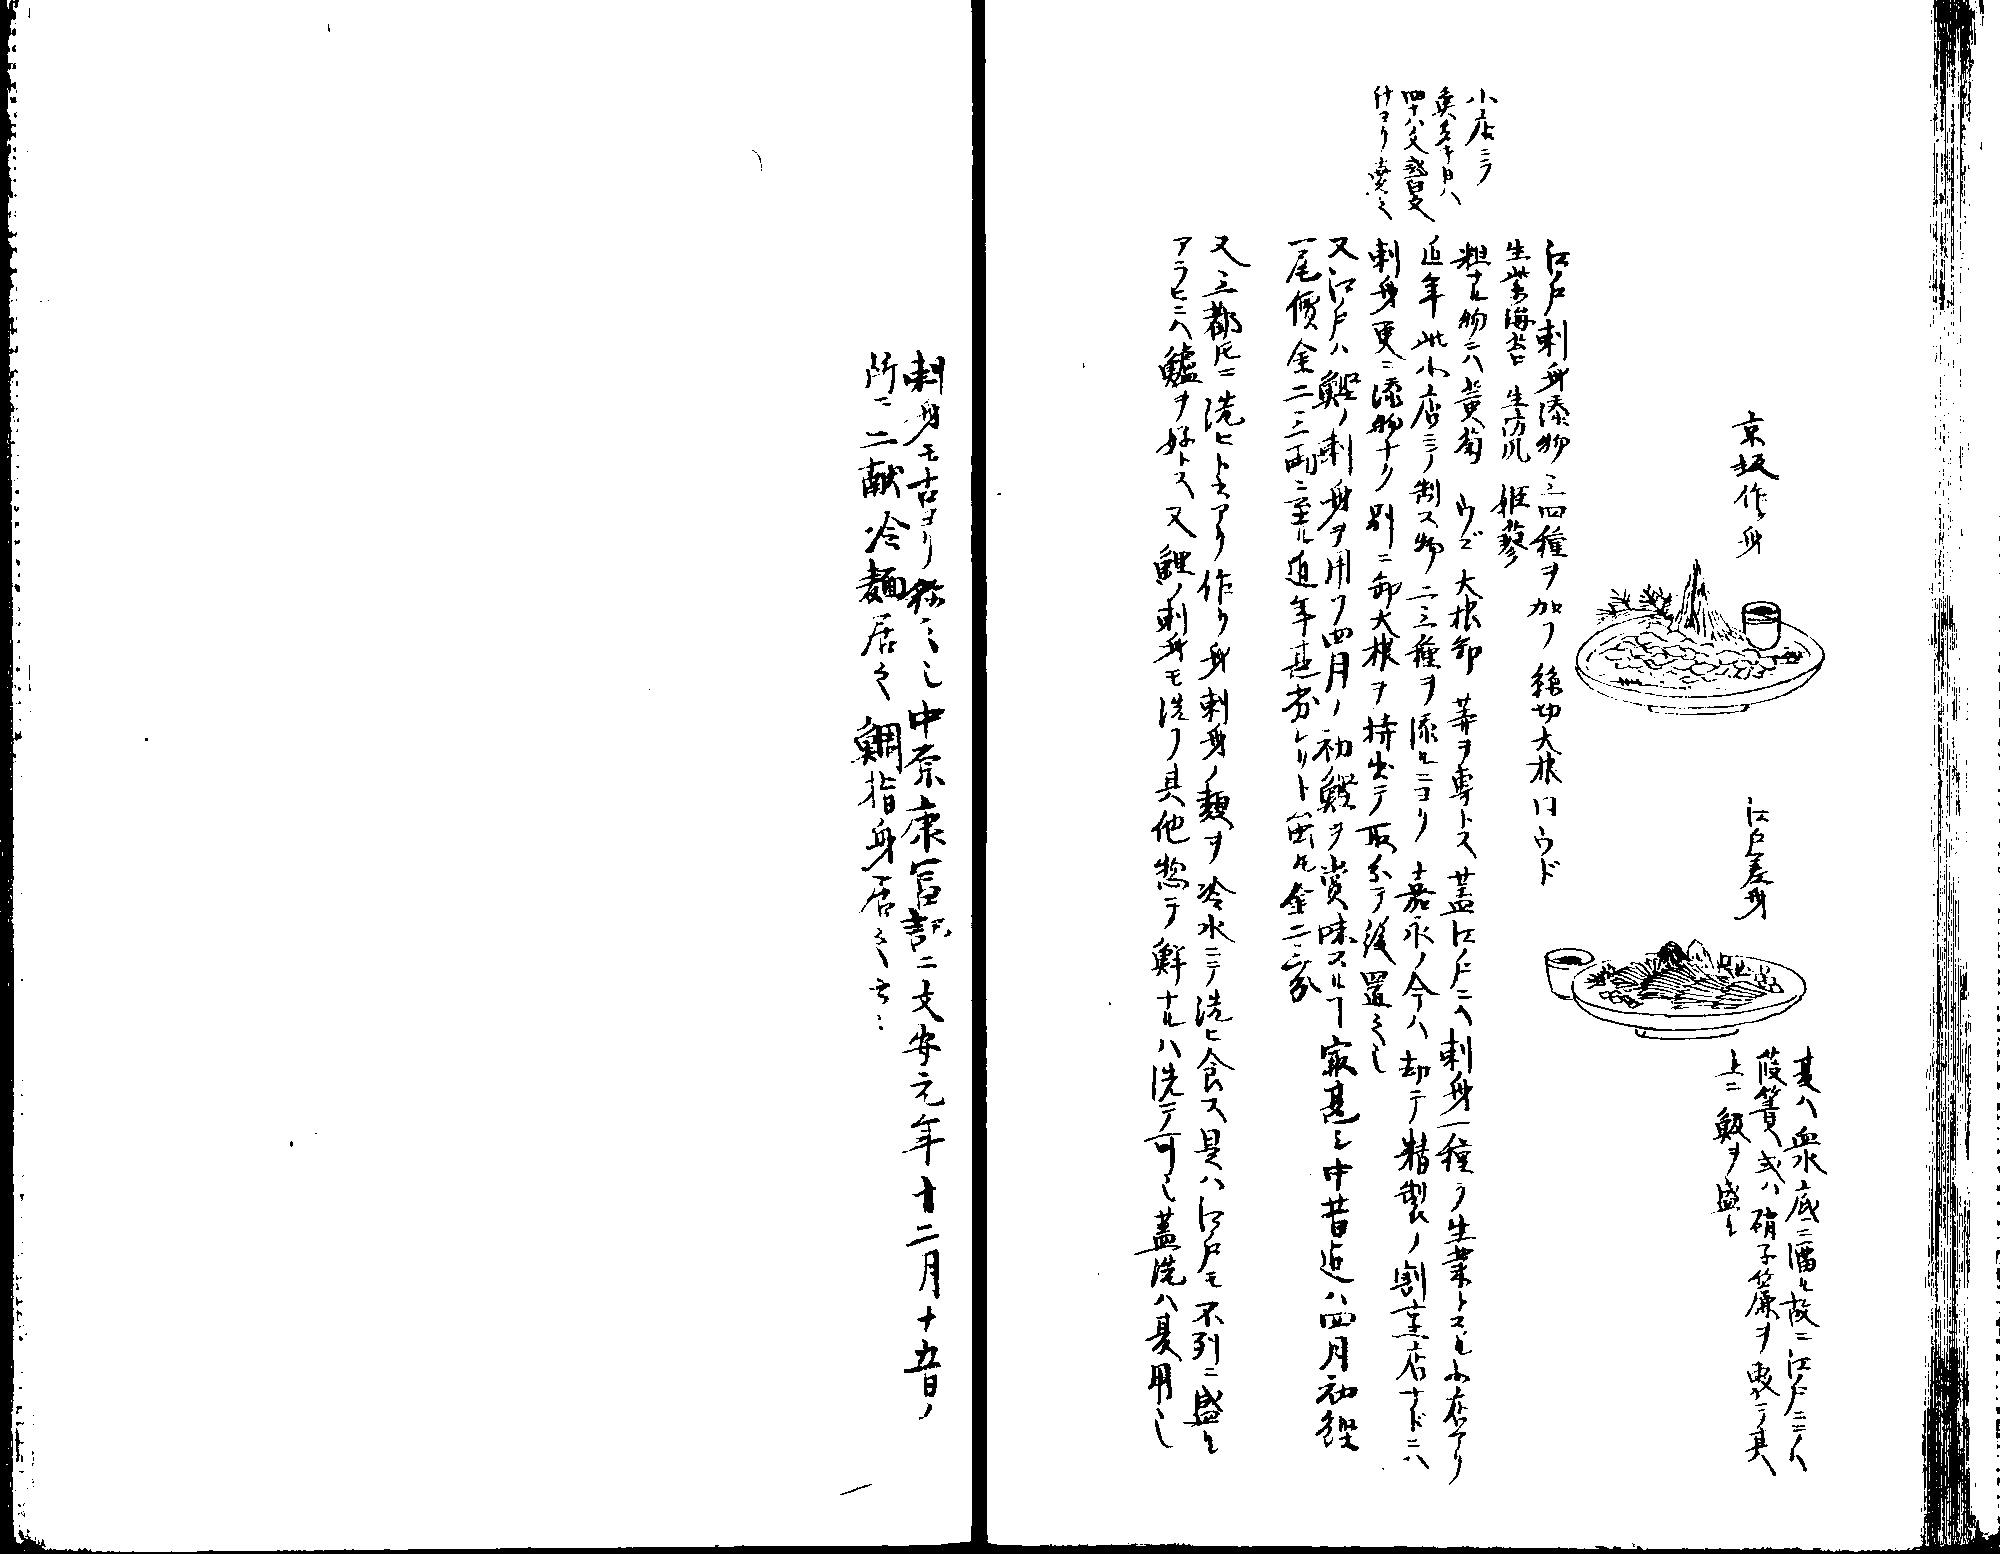 京坂作身
江戸差身
其ハ血水底ニ溜ル故ニ江戸ニハ
葭簀或ハ硝子簾ヲ
上ニ鰒ヲ盛ル
江戸刺身添物三四種ヲ加フ 糸切大根 同ウド
生紫海苔 生防風 姫蓼
粗ナル物ニハ黄菊 ウゴ 大根卸 等ヲ専トス 蓋江戸ニハ刺身一種ヲ生業トスル小店アリ
近年此小店ニテ制ス物二三種ヲ添ルニヨリ 嘉永ノ今ハ却テ精製ノ割烹店ナドニハ
刺身更ニ添物ナク別ニ卸大根ヲ持出テ取分テ後置之
又江戸ハ鰹ノ刺身ヲ用フ四月ノ初鰹ヲ賞味スルヿ最甚シ中昔迄ハ四月初鰹
一尾價金二三両ニ至ル近年甚劣レリト雖𪜈金二三分
小店ニテ
四十八文或百文
付ヨリ売之
又三都𪜈ニ洗ヒト云アリ作り身刺身ノ類ヲ冷水ニテ洗ヒ食ス是ハ江戸モ不列ニ盛ル
アラヒニハ鱸ヲ好トス又鯉ノ刺身モ洗フ其他惣テ鮮ナルハ洗テ可也蓋洗ハ夏用也
刺身モ古ヨリ称之也中原康冨記ニ文安元年十二月十五日ノ
所ニ二献冷麺居之鯛指身居之云々